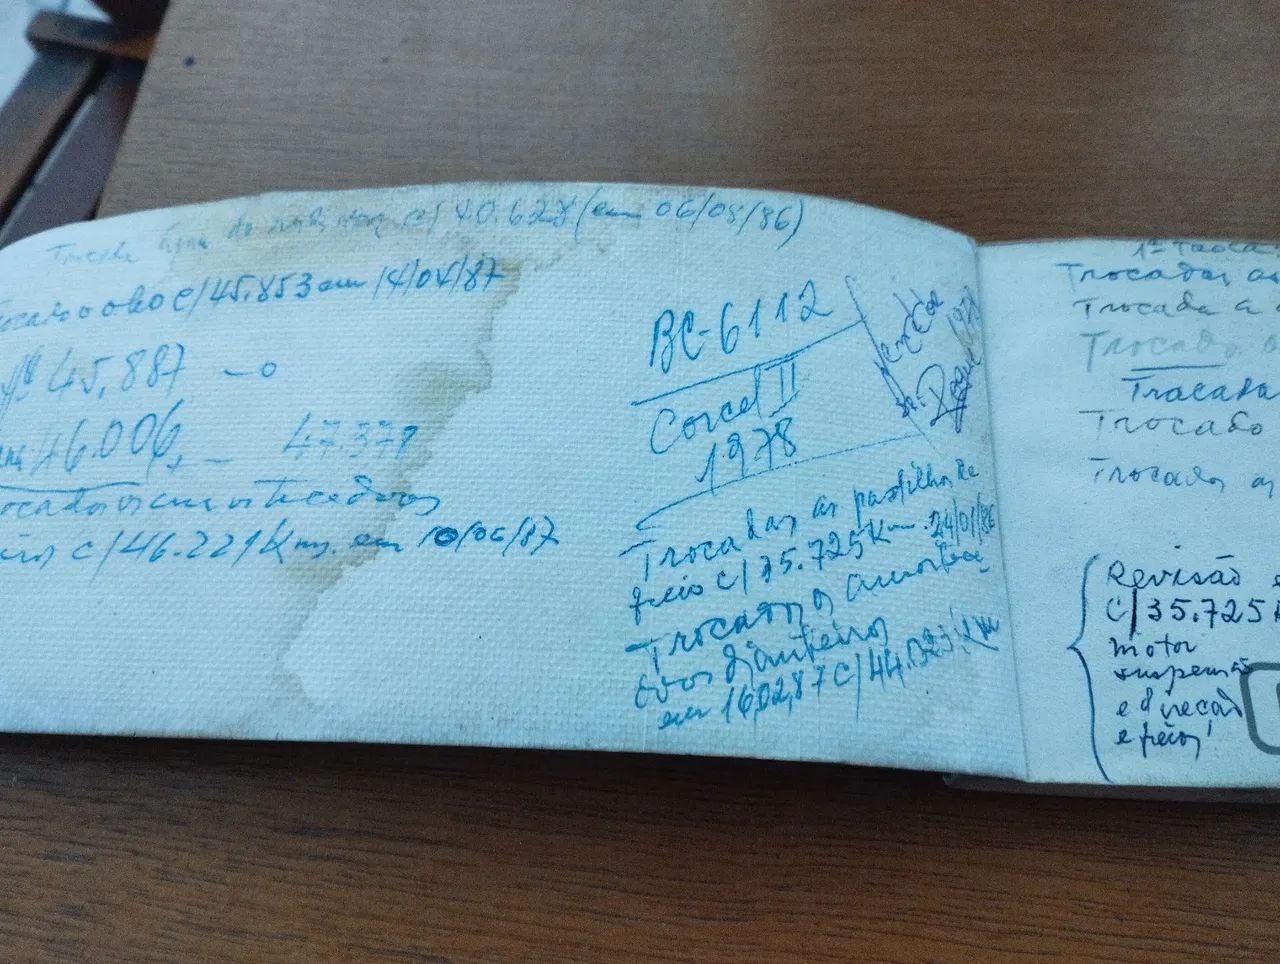 Trocada água do c/ 40.628 (em 06/08/86)
ocado o oleo c/45.853 em 14/04/87
45.887 - o
46.006, - 47.378
ocados os amortecedores
c/46.221 Kms. em 10/06/87
BC-6112
Corcel II
1978
Trocadas as pastilhas de
freio c/35.725 Km. 24/01/86
Trocados os amortece
dores dianteiros
em 16,02,87 c/44.023 Km
1ª Troca
Trocadas as
Trocada a
Trocado o
Trocada
Trocado
Trocados os
Revisão e
c/35.725 K
motor
suspensão
e direção
e freios!